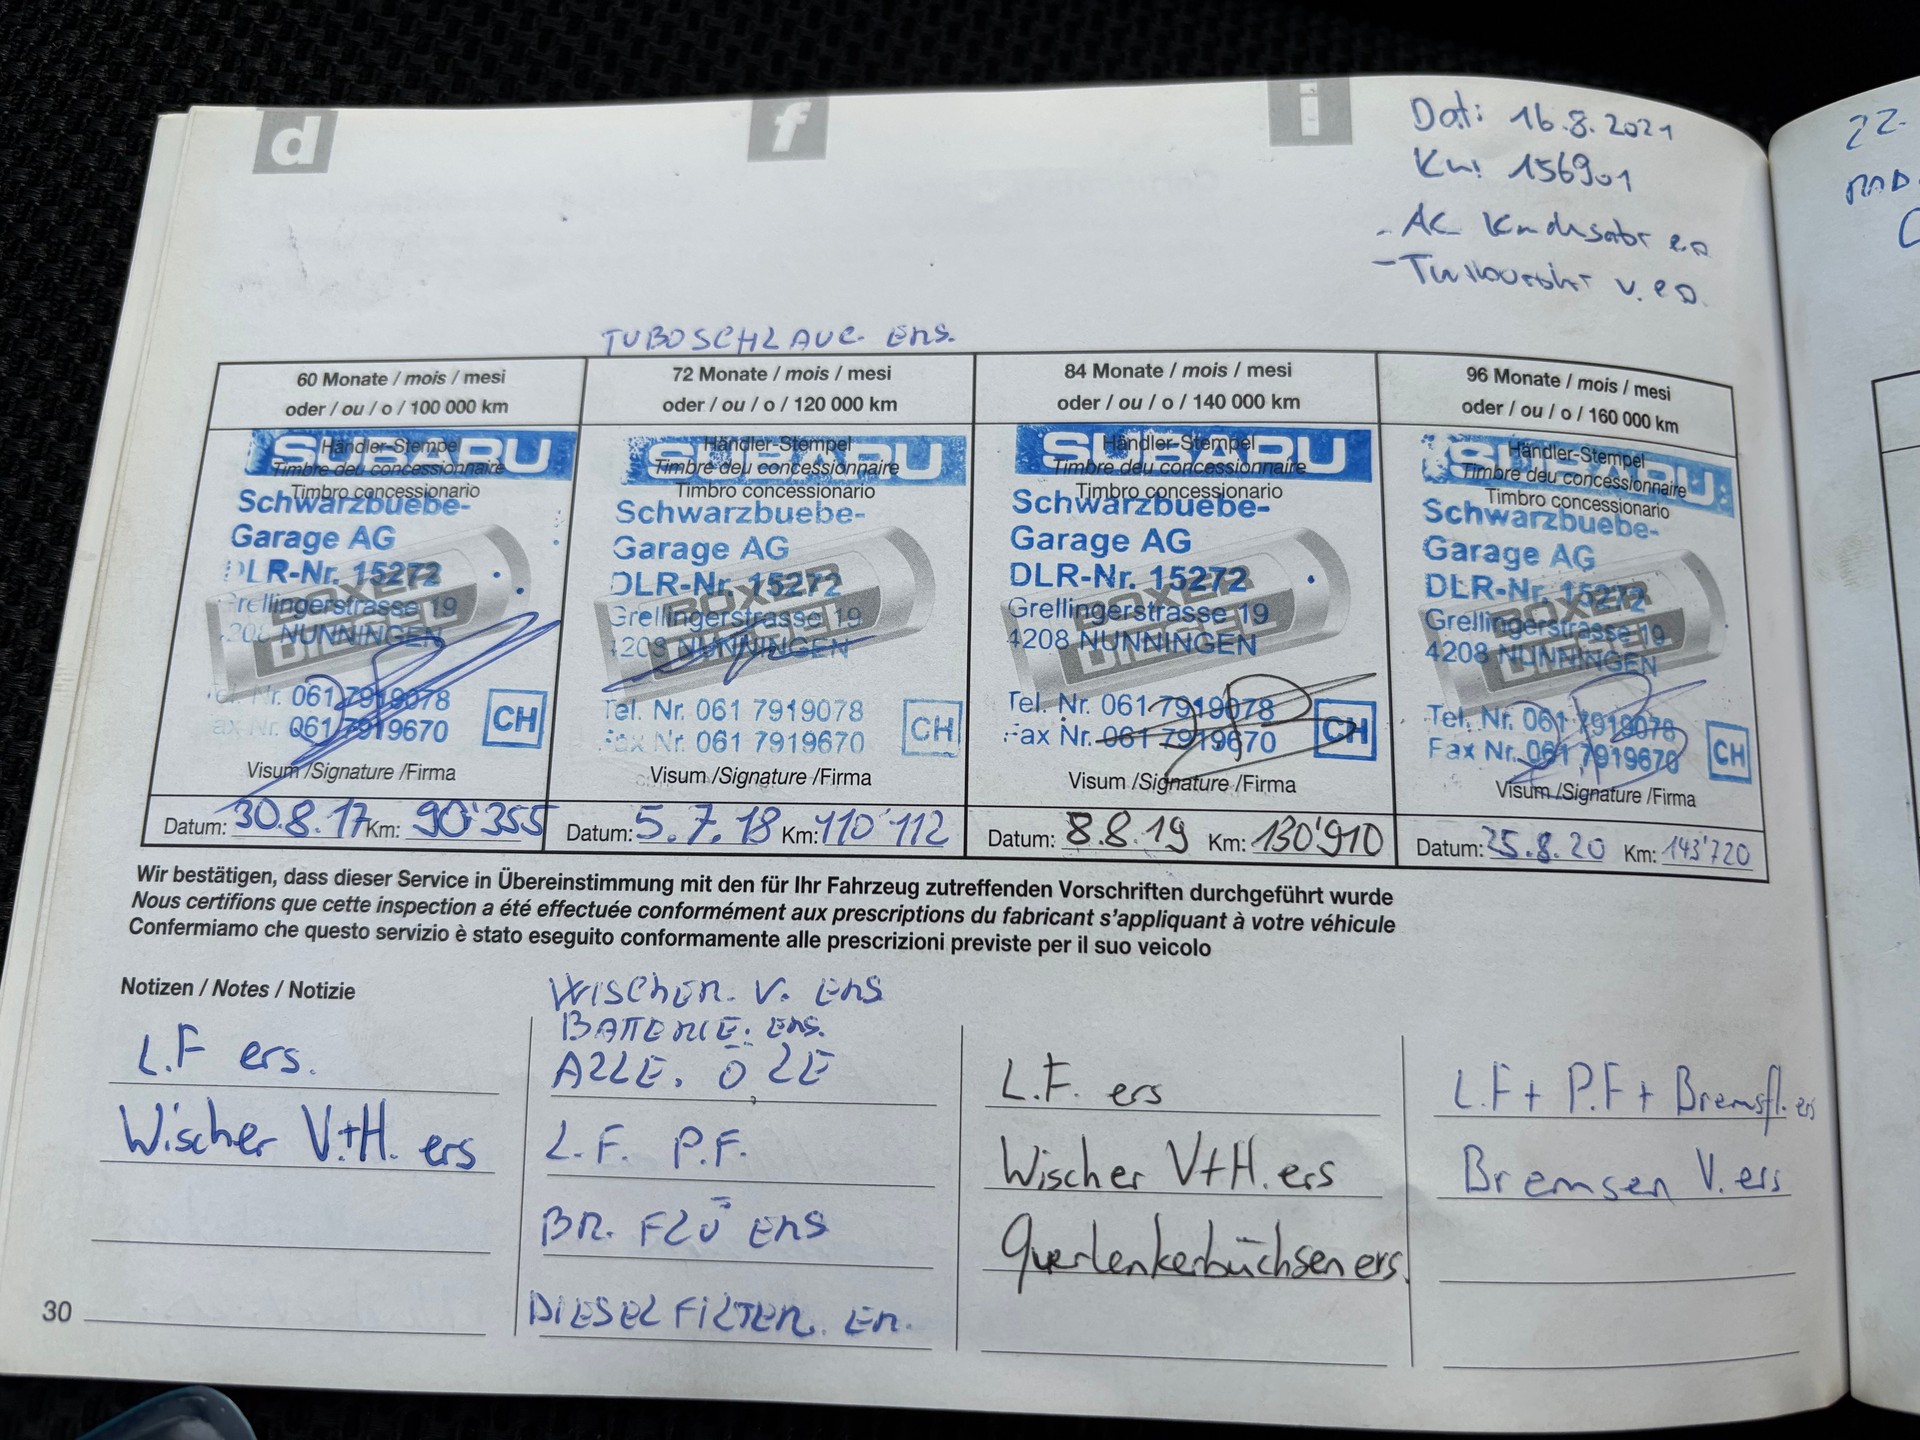 d
f
i
Dat: 16.8.2021
Km: 156901
- AC
-
TUBOSCHLAUC. ERS.
60 Monate / mois / mesi
oder / ou / o / 100 000 km
72 Monate / mois / mesi
oder / ou / o / 120 000 km
84 Monate / mois / mesi
oder / ou / o / 140 000 km
96 Monate / mois / mesi
oder / ou / o / 160 000 km
SUBARU
Händler-Stempel
Timbre deu concessionnaire
Timbro concessionario
Schwarzbuebe-
Garage AG
DLR-Nr. 15272
Grellingerstrasse 19
4208 NUNNINGEN
BOXER
DIESEL
Tel. Nr. 061 7919078
Fax Nr. 061 7919670
CH
Visum /Signature /Firma
Datum: 30.8.17 Km: 90'355
SUBARU
Händler-Stempel
Timbre deu concessionnaire
Timbro concessionario
Schwarzbuebe-
Garage AG
DLR-Nr. 15272
Grellingerstrasse 19
4208 NUNNINGEN
BOXER
DIESEL
Tel. Nr. 061 7919078
Fax Nr. 061 7919670
CH
Visum /Signature /Firma
Datum: 5.7.18 Km: 110'112
SUBARU
Händler-Stempel
Timbre deu concessionnaire
Timbro concessionario
Schwarzbuebe-
Garage AG
DLR-Nr. 15272
Grellingerstrasse 19
4208 NUNNINGEN
BOXER
DIESEL
Tel. Nr. 061 7919078
Fax Nr. 061 7919670
CH
Visum /Signature /Firma
Datum: 8.8.19 Km: 130'910
SUBARU
Händler-Stempel
Timbre deu concessionnaire
Timbro concessionario
Schwarzbuebe-
Garage AG
DLR-Nr. 15272
Grellingerstrasse 19
4208 NUNNINGEN
BOXER
DIESEL
Tel. Nr. 061 7919078
Fax Nr. 061 7919670
CH
Visum /Signature /Firma
Datum: 25.8.20 Km: 143'720
Wir bestätigen, dass dieser Service in Übereinstimmung mit den für Ihr Fahrzeug zutreffenden Vorschriften durchgeführt wurde
Nous certifions que cette inspection a été effectuée conformément aux prescriptions du fabricant s'appliquant à votre véhicule
Confermiamo che questo servizio è stato eseguito conformamente alle prescrizioni previste per il suo veicolo
Notizen / Notes / Notizie
L.F ers.
Wischer V.+H. ers
WISCHER. V. ERS
BATTERIE. ERS.
ALLE. ÖLE
L.F. P.F.
BR. FLÜ ERS
DIESELFILTER. ER.
L.F. ers
Wischer V+H. ers
Querlenkerbüchsen ers.
L.F + P.F + Bremsfl. ers
Bremsen V. ers
30
22.